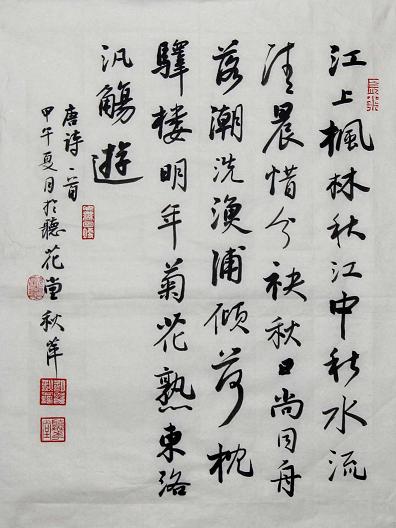 江上楓林秋江中秋水流
清晨惜分袂秋日尚同舟
落潮洗漁浦傾荷枕
驛樓明年菊花熟東洛
汎觴遊
唐詩一首
甲午夏月於聽花堂秋萍